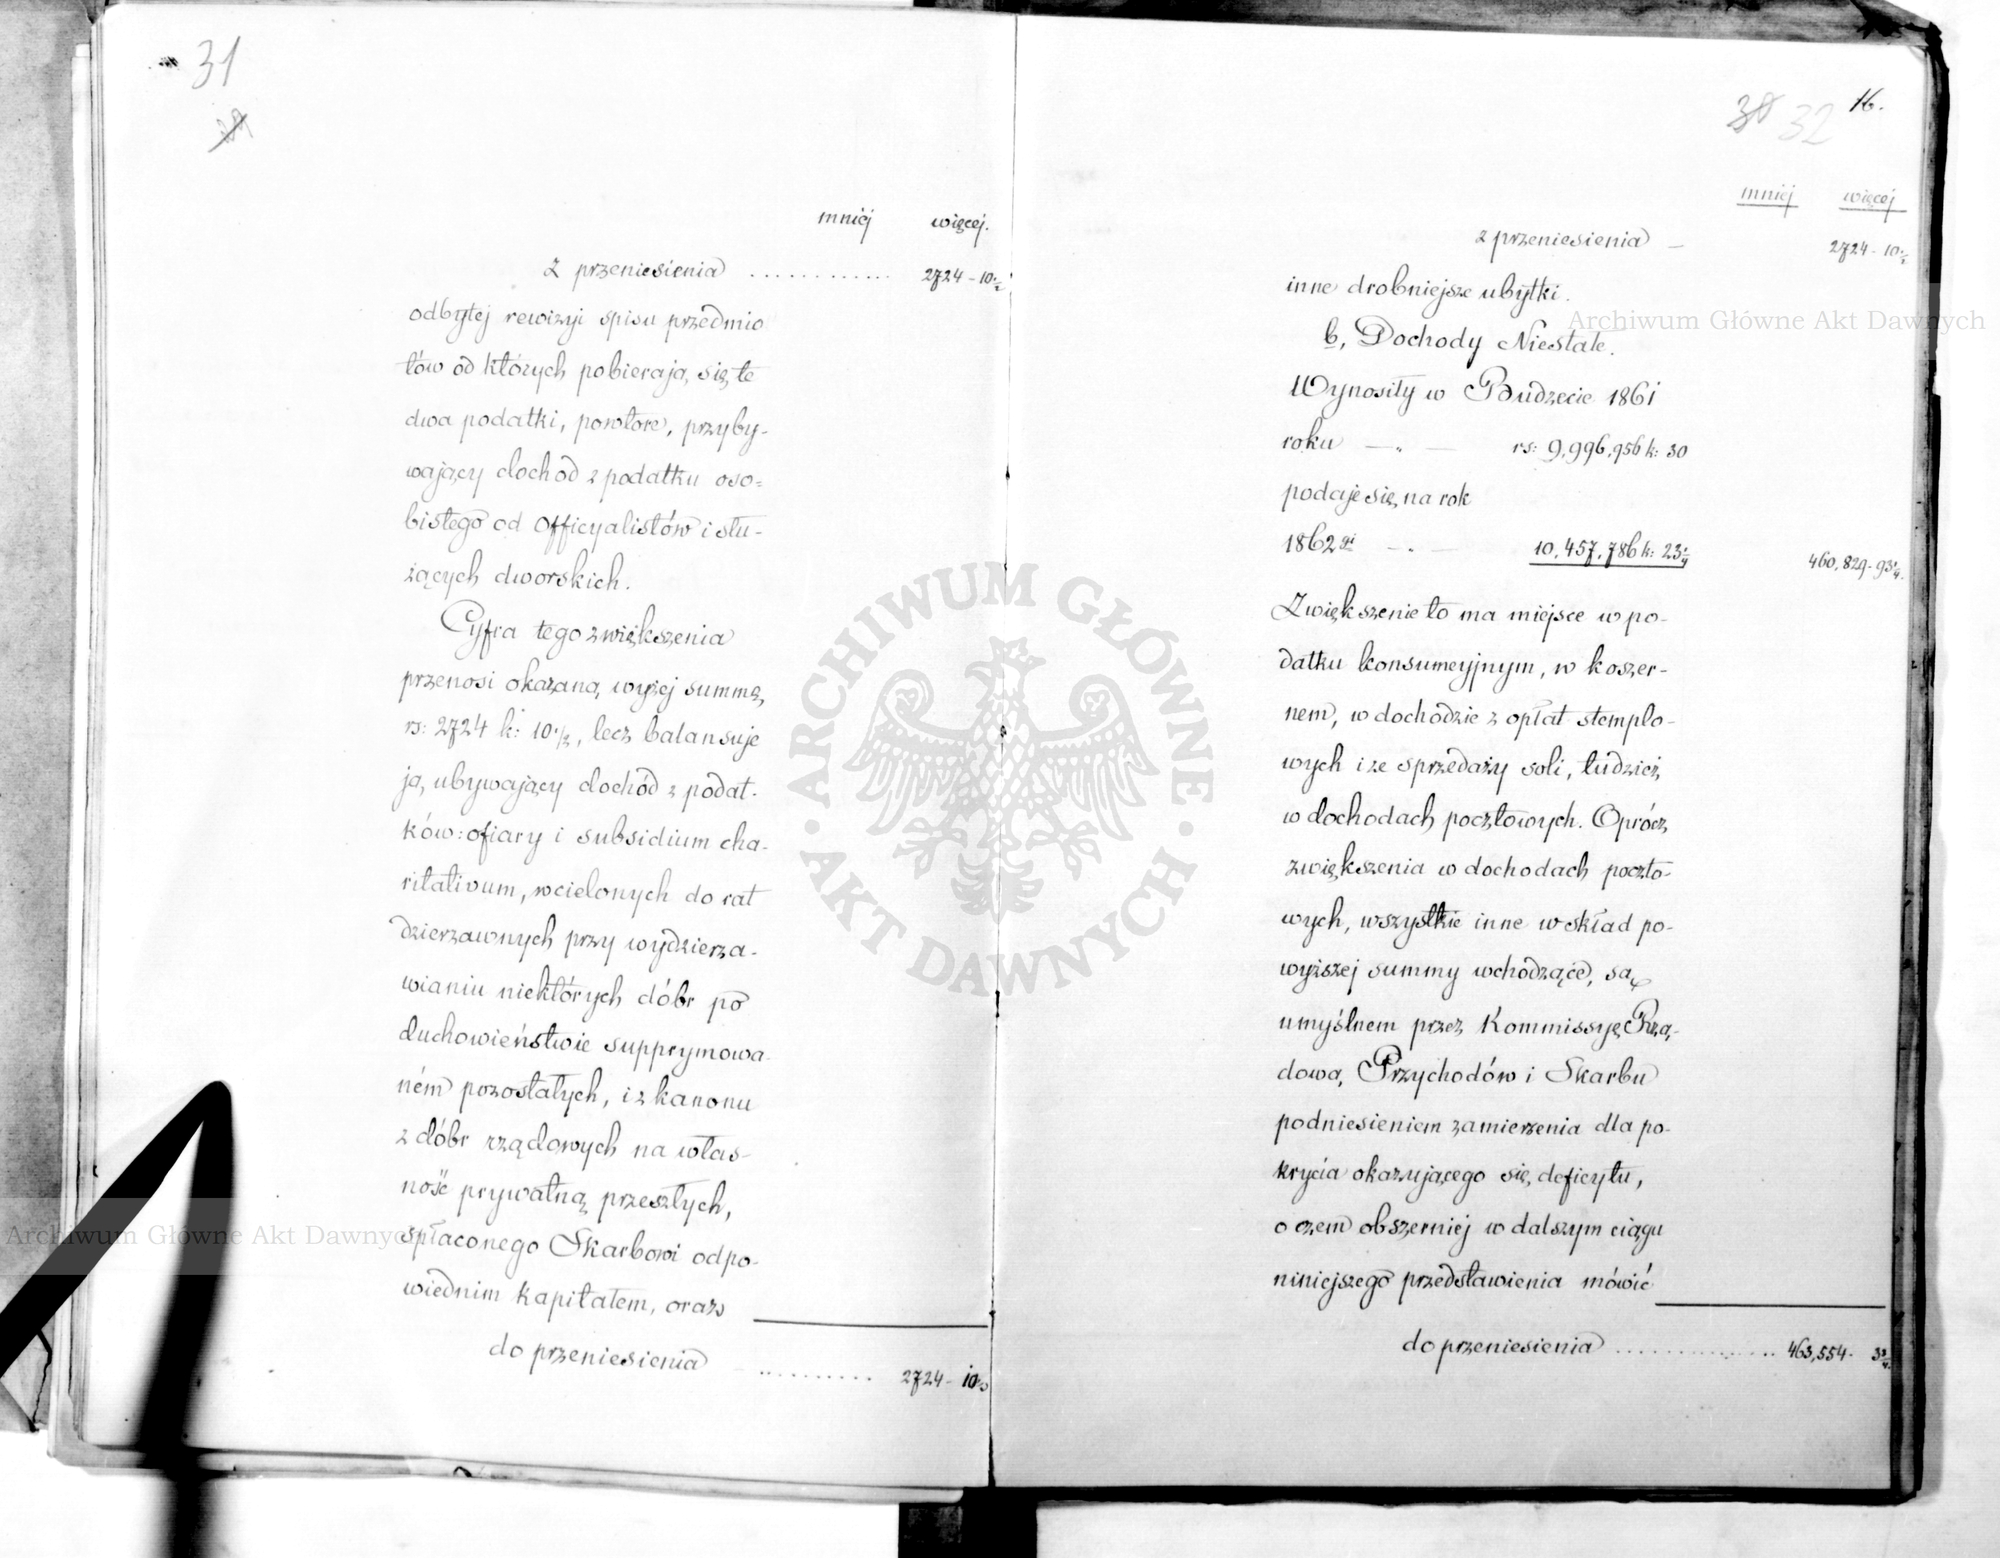 31
mniéj więcej.
z przeniesienia ............ 2724 - 10 1/2
odbytej rewizyi spisu przedmio
tów od których pobierają się te
dwa podatki, powtóre, przyby-
wający dochód z podatku oso-
bistego od officyalistów i słu-
żących dworskich.
Cyfra tego zwiększenia
przenosi okazaną wyżej summę,
rs: 2724 k: 10 1/2, lecz balansuje
ją, ubywający dochód z podat-
ków: ofiary i subsidium cha-
ritativum, wcielonych do rat
dzierzawnych przy wydzierza-
wianiu niektórych dóbr po
duchowieństwie supprymowa-
ném pozostałych, i z kanonu
z dóbr rządowych na włas-
ność prywatną przeszłych,
spłaconego Skarbowi odpo-
wiednim kapitałem, oraz
do przeniesienia .......... 2724 - 10 1/2
30 32 16.
mniéj więcej
z przeniesienia — 2724 - 10 1/2
inne drobniejsze ubytki.
b, Dochody Niestałe.
Wynosiły w Budżecie 1861
roku — „ — rs: 9,996,956 k: 30
podaje się na rok
1862 gi — „ — 10,457,786 k: 23 1/4 460,829 - 93 1/4.
Zwiększenie to ma miejsce w po-
datku konsumcyjnym, w koszer-
nem, w dochodzie z opłat stemplo-
wych i ze sprzedaży soli, tudzież
w dochodach pocztowych. Oprócz
zwiększenia w dochodach poczto-
wych, wszystkie inne w skład po-
wyższej summy wchodzące, są
umyślnem przez Kommissyę Rzą-
dową Przychodów i Skarbu
podniesieniem zamierzenia dla po-
krycia okazującego się deficytu,
o czem obszerniej w dalszym ciągu
niniejszego przedstawienia mówić
do przeniesienia ............... 463,554 - 3 3/4.
Archiwum Główne Akt Dawnych
Archiwum Główne Akt Dawnych
ARCHIWUM GŁÓWNE • AKT DAWNYCH •